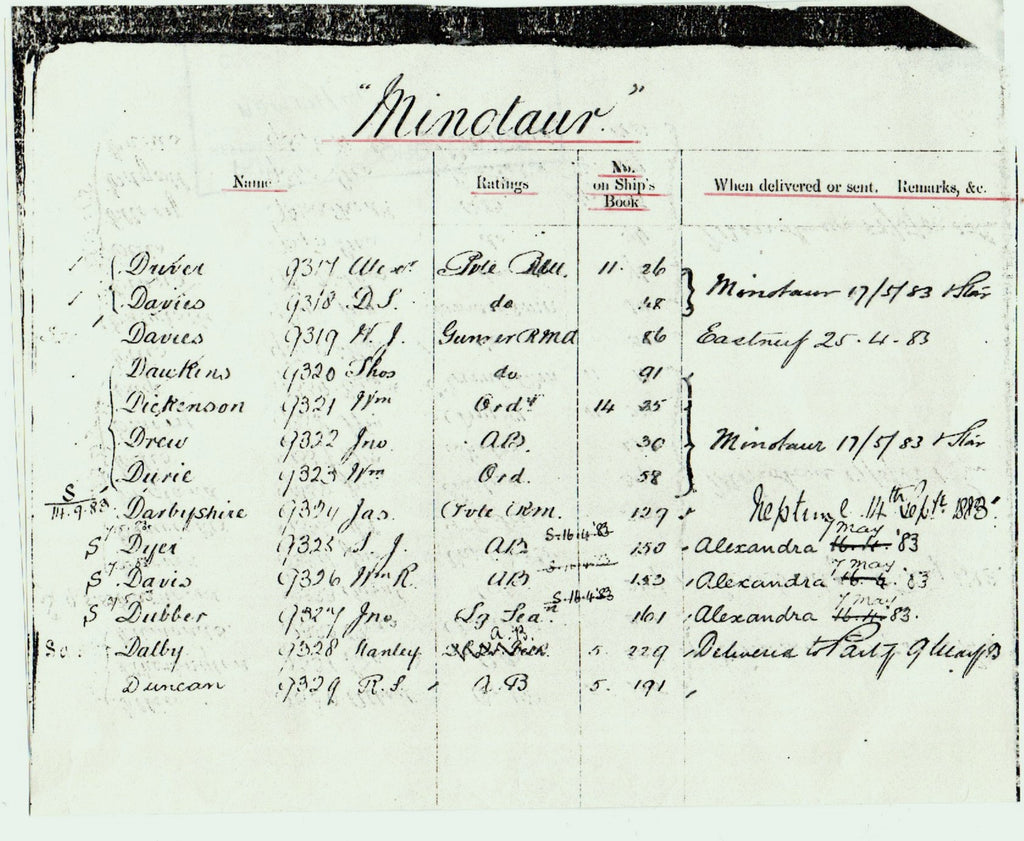 "Minotaur"
Name Ratings No. on Ship's Book When delivered or sent. Remarks, &c.
Driver 9317 Alexr Pvte 11. 26
Davies 9318 D.S. do 48 Minotaur 17/5/83 & Star
Davies 9319 H.J. Gunner RMA 86 25.4.83
Dawkins 9320 Thos do 91
Dickenson 9321 Wm Ord 14 25
Drew 9322 Jno AB. 30 Minotaur 17/5/83 & Star
Durie 9323 Wm Ord. 58
S 14.9.83 Darbyshire 9324 Jas. Pvte RM. 129 Neptune 14th Septr 1883.
S Dyer 9325 S.J. AB S.16.4.83 150 Alexandra 16.4. 7 May '83
S Davis 9326 Wm R. AB 153 Alexandra 16.4. 7 May 83
S Dubber 9327 Jno Lg Sean S.16.4.83 161 Alexandra 16.4. 7 May 83.
Dalby 9328 Stanley A.B. 5. 229 Delivered to Party 9 May 83
Duncan 9329 R.S. A.B 5. 191